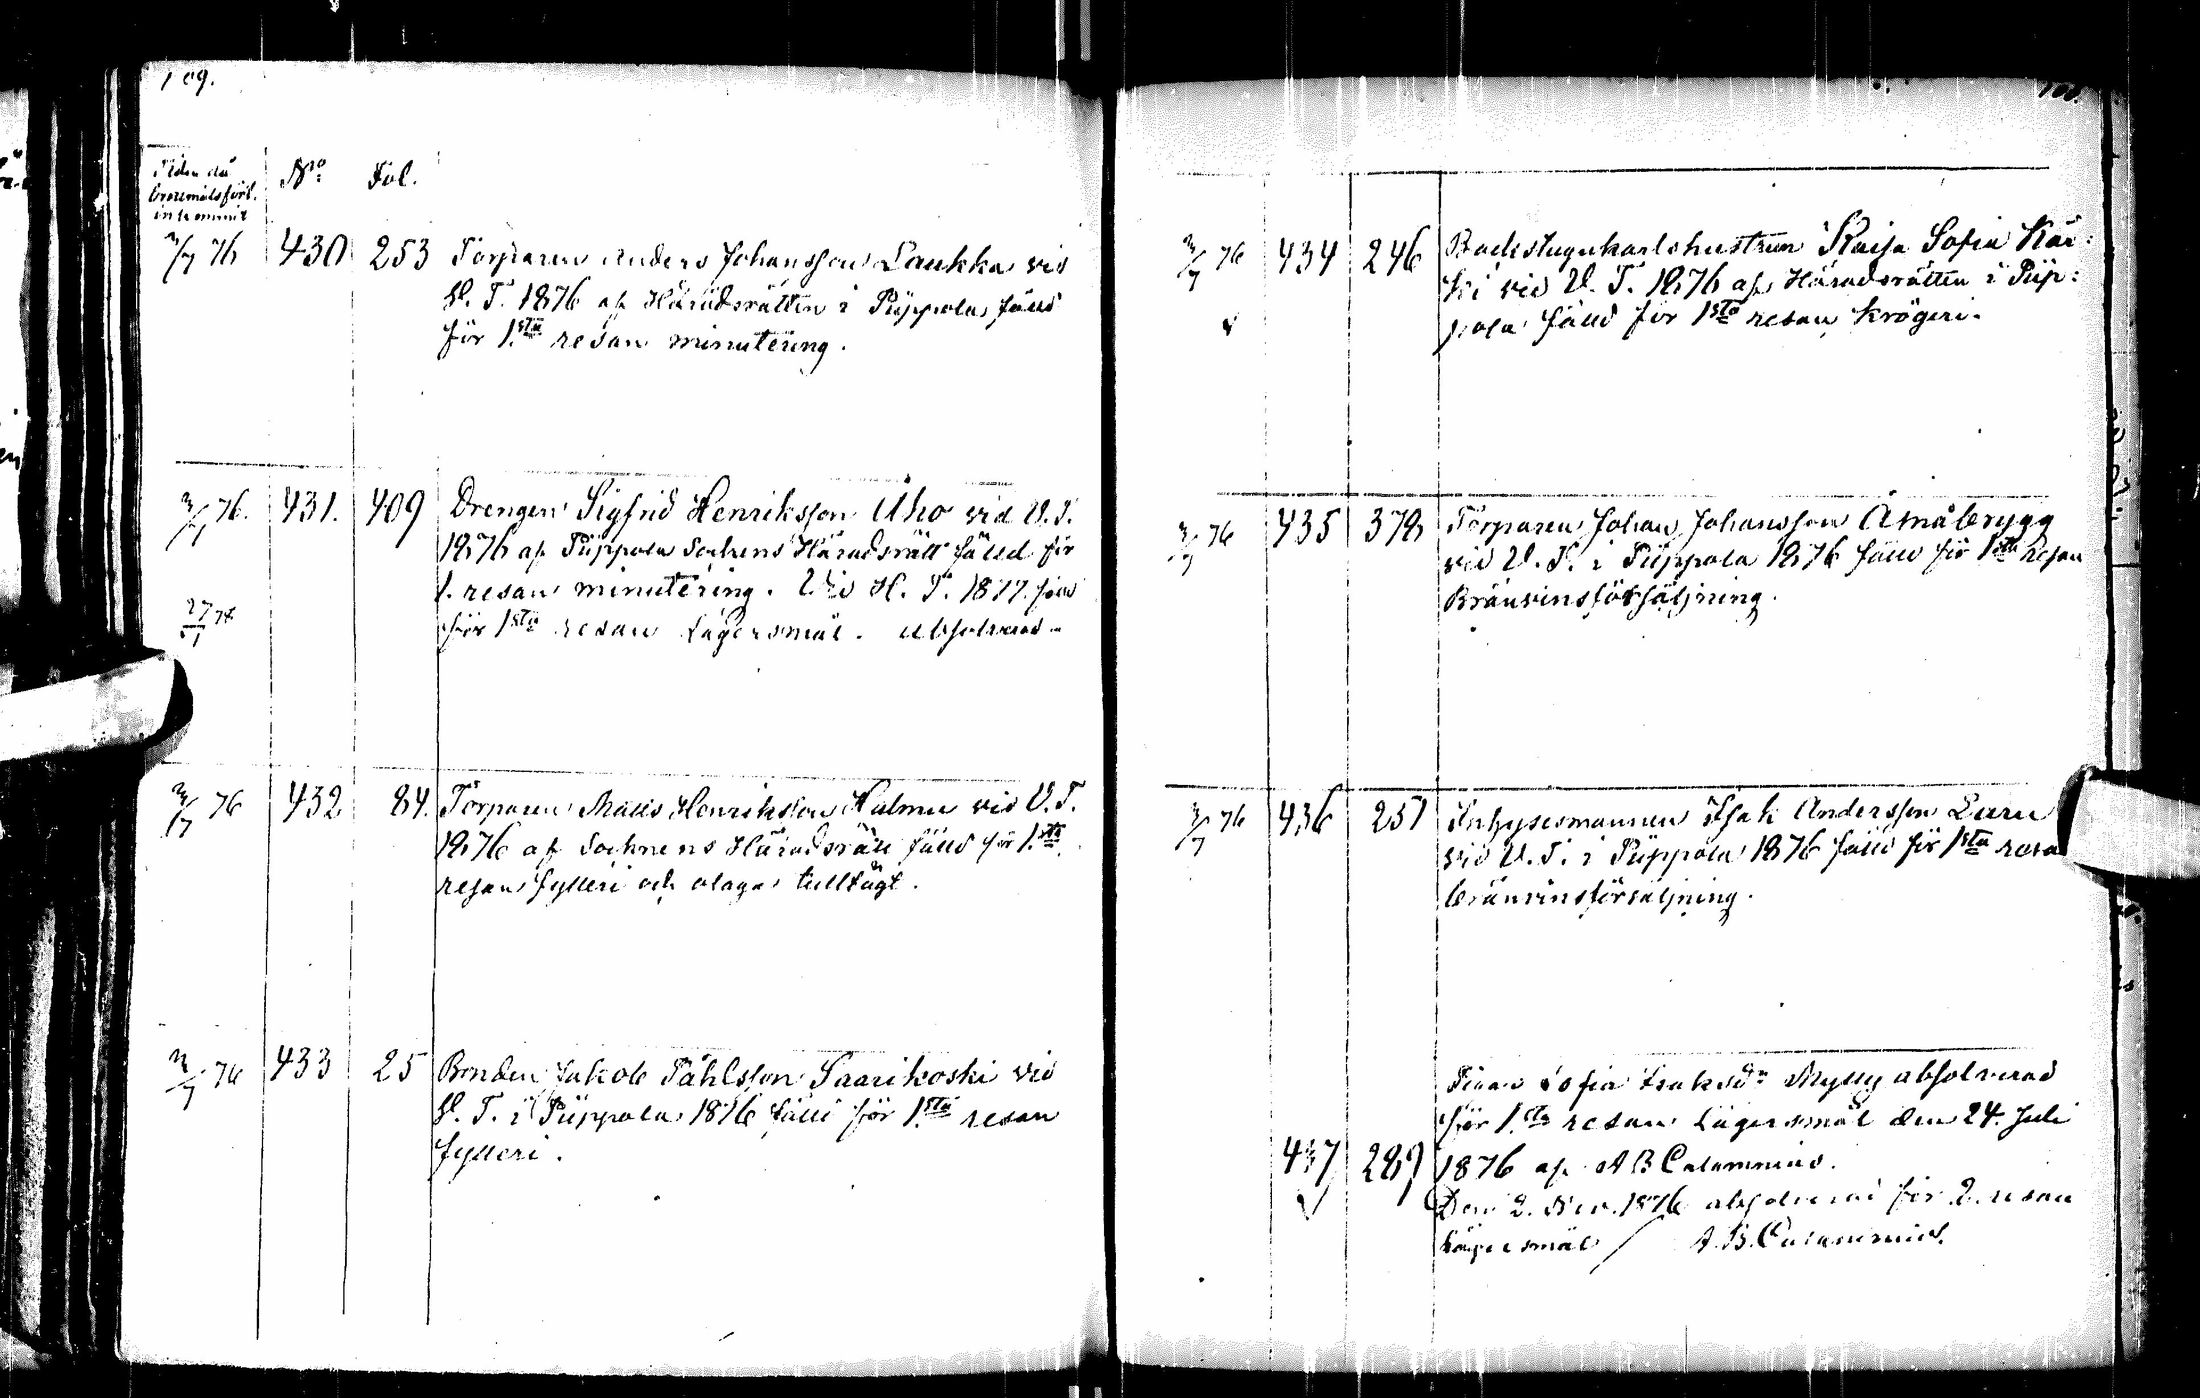 109.
Tiden då
brottmålsförl.
inkommit
No Fol.
2/7 76 430 253 Torparen Anders Johansson Laukka vid
V. T. 1876 af Häradsrätten i Piippola fälld
för 1sta resan minutering.
2/7 76. 431. 409 Drengen Sigfrid Henriksson Aho vid V. T.
1876 af Piippola Sockens Häradsrätt fälld för
1. resan minutering. Vid H. T. 1877
för 1sta resan Lägersmål. absolverad.
2/7 76 432 84. Torparen Matts Henriksson Hulmu vid V. T.
1876 af Socknens Häradsrätt fälld för 1sta
resan fylleri och olaga tilltägt.
2/7 76 433 25 Bonden Jakob Påhlsson Saarikoski vid
V. T. i Piippola 1876 fälld för 1sta resan
fylleri.
2/7 76 434 246 Backstugukarlshustrun Kaisa Sofia Kär:
ki vid V. T. 1876 af Häradsrätten i Piip:
pola fälld för 1sta resan krögeri.
2/7 76 435 379 Torparen Johan Johansson Åmåbrygg
vid V. T. i Piippola 1876 fälld för 1sta resan
Bränvinsförsäljning.
2/7 76 436 251 Inhysesmannen Isak Andersson Luru
vid V. T. i Piippola 1876 fälld för 1sta resa
bränvinsförsäljning.
Sofia Isaksdr Mylly absolverad
för 1sta resan Lägersmål den 24. Juli
437 289 1876 af A B Calamnius.
Den 2. Nov. 1876 absolverad för 2. resan
Lägersmål / A. B. Calamnius.